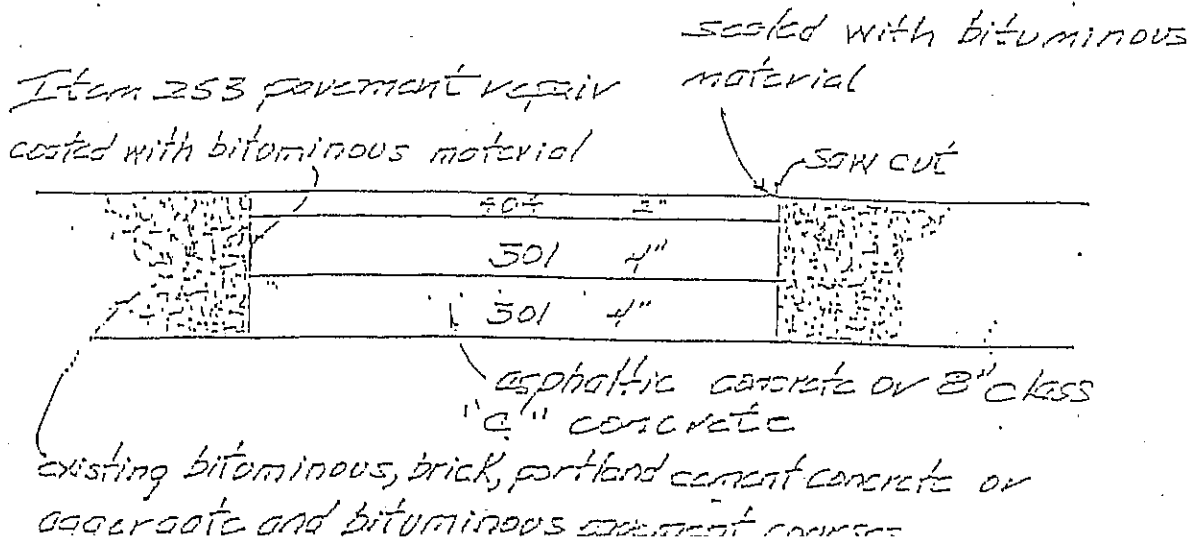 sealed with bituminous
material
Item 253 pavement repair
coated with bituminous material
saw cut
404 2"
301 4"
301 4"
asphaltic concrete or 8" class
"C" concrete
existing bituminous, brick, portland cement concrete or
aggregate and bituminous pavement courses